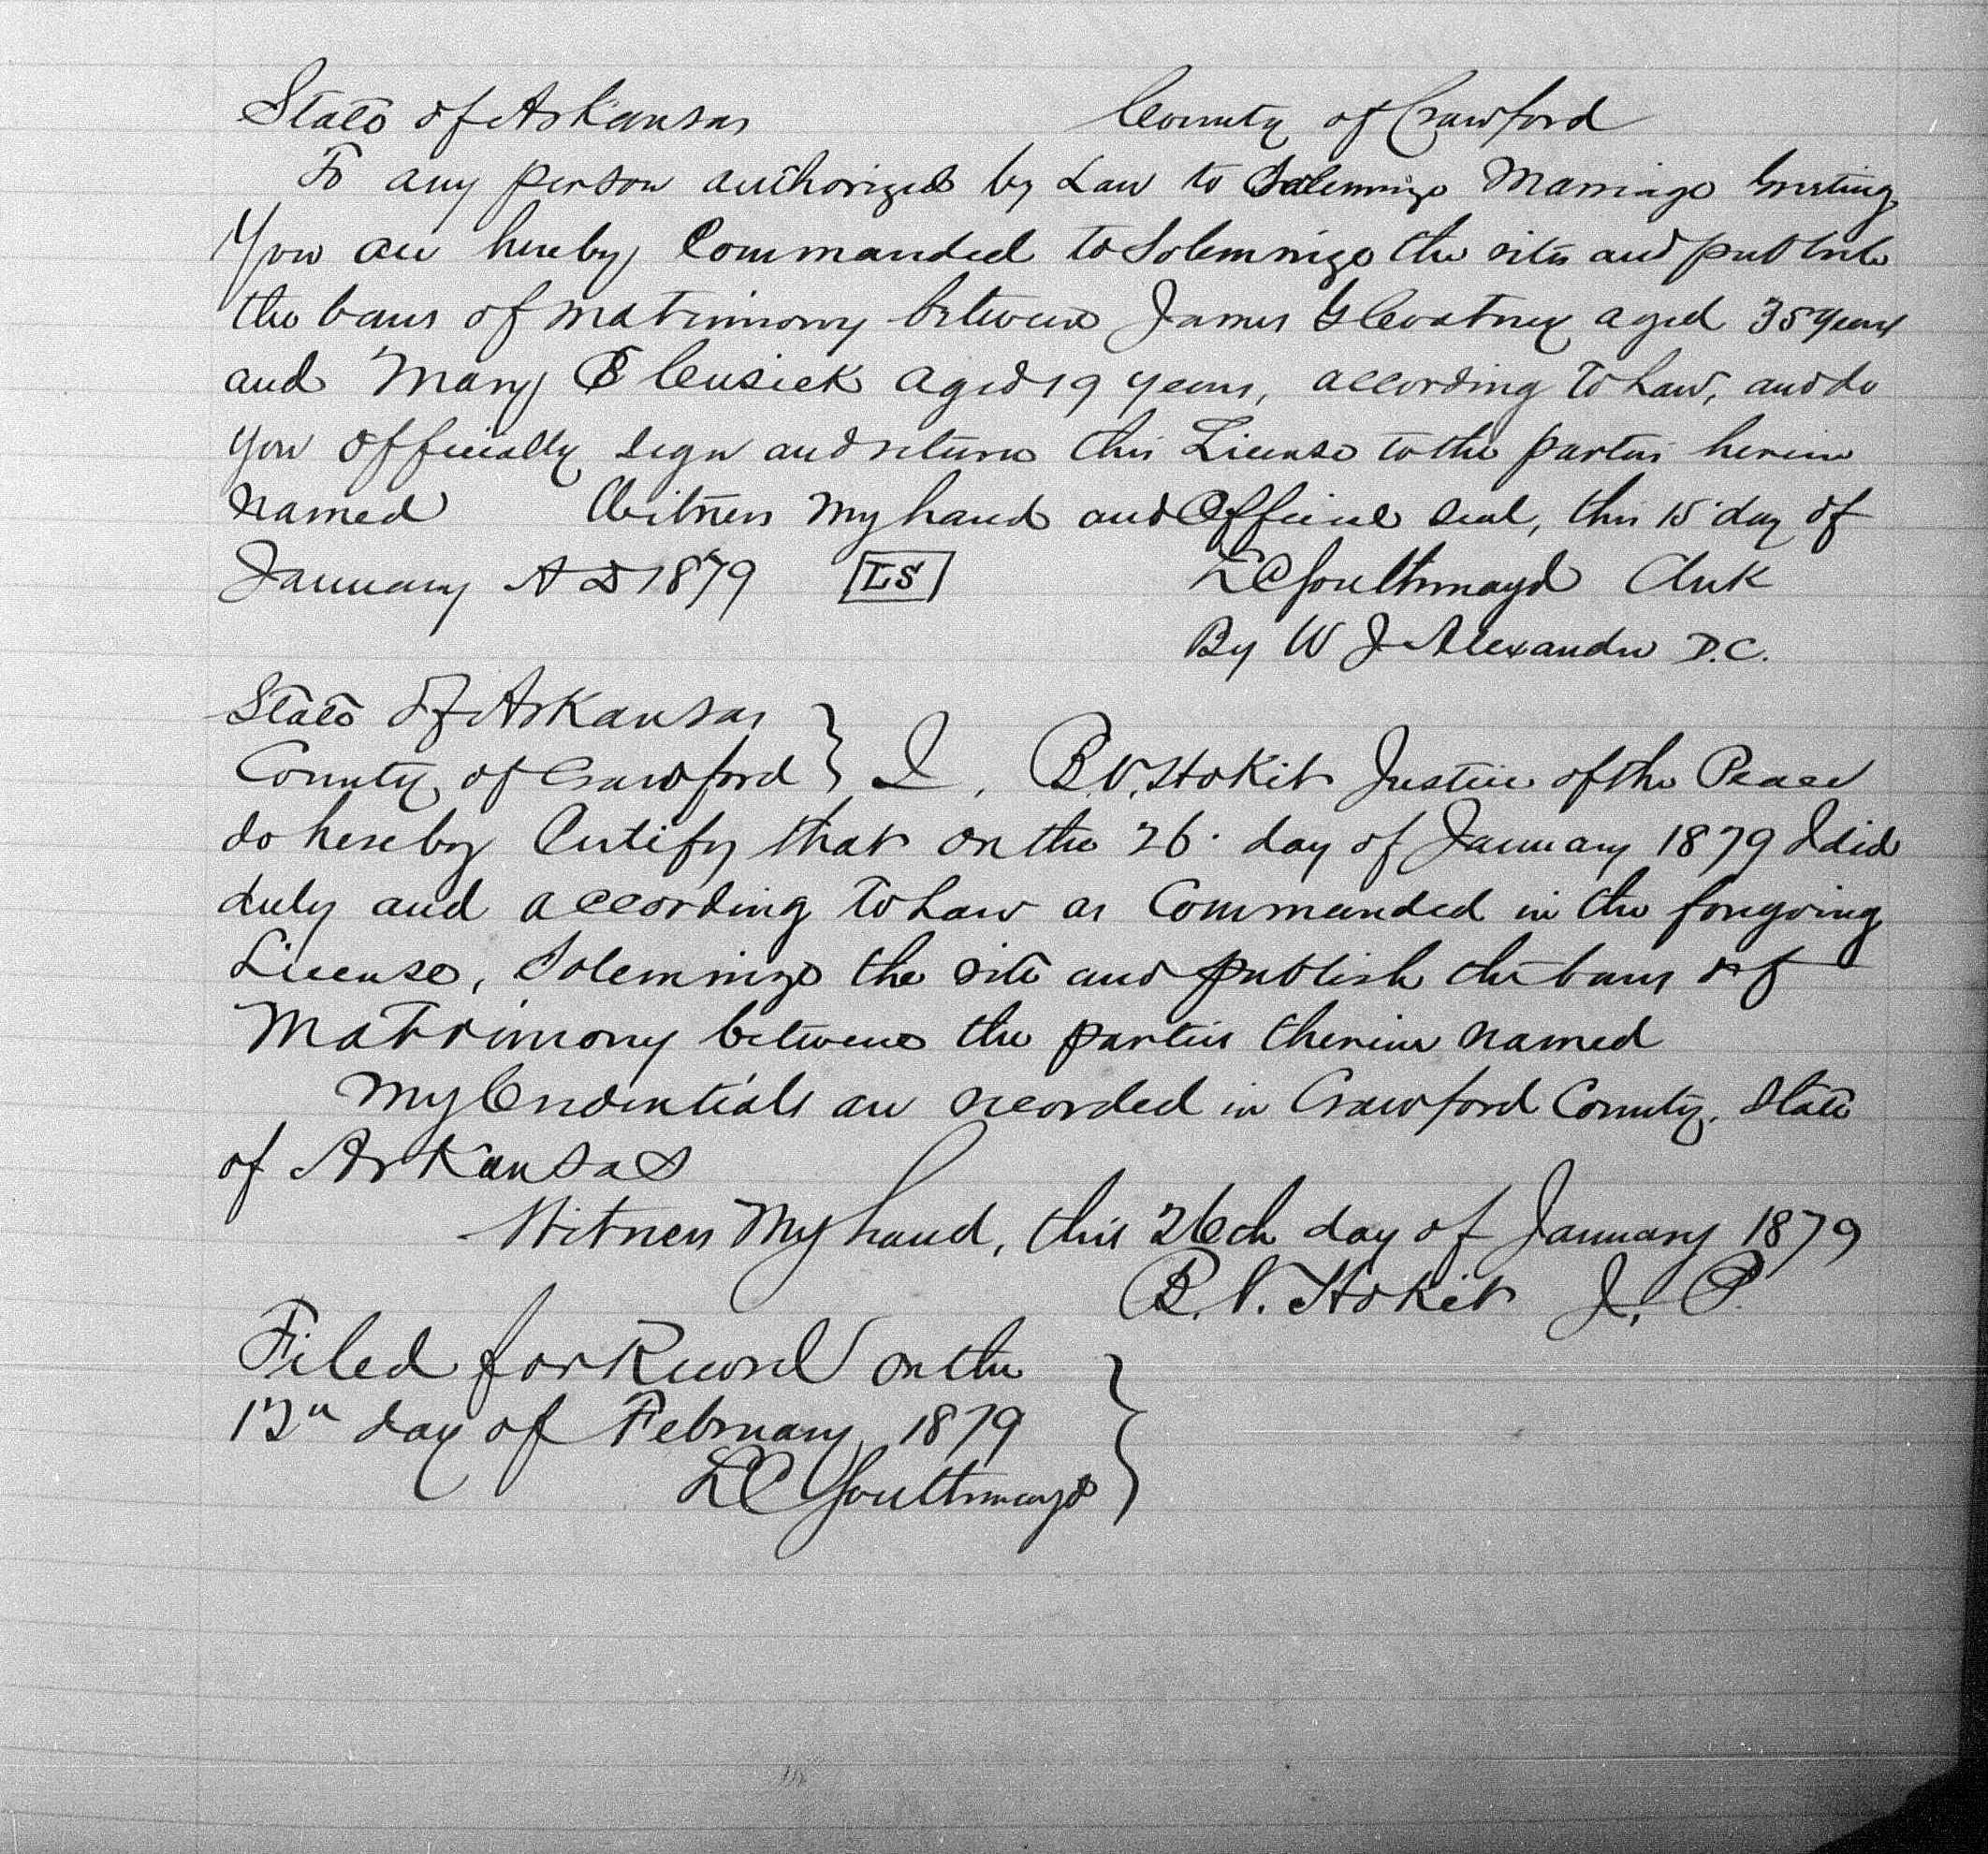 State of Arkansas County of Crawford
To any person authorized by Law to Solemnize Marriage Greeting
You are hereby Commanded to Solemnize the rites and publish
the bans of matrimony between James G Coatney aged 35 years
and Mary E Cusick aged 19 years, according to Law, and do
you officially sign and return this License to the parties herein
named Witness my hand and Official seal, this 15" day of
January AD 1879 LS L C Southmayd Clerk
By W J Alexander D.C.
State of Arkansas
County of Crawford } I, B. V. Hokit Justice of the Peace
do hereby Certify that on the 26. day of January 1879 I did
duly and according to Law as Commanded in the foregoing
License, Solemnize the rite and publish the bans of
Matrimony between the parties therein named
My Credentials are recorded in Crawford County, State
of Arkansas
Witness My hand, this 26th day of January 1879
B. V. Hokit J. P.
Filed for Record on the
day of February 1879
L C Southmayd